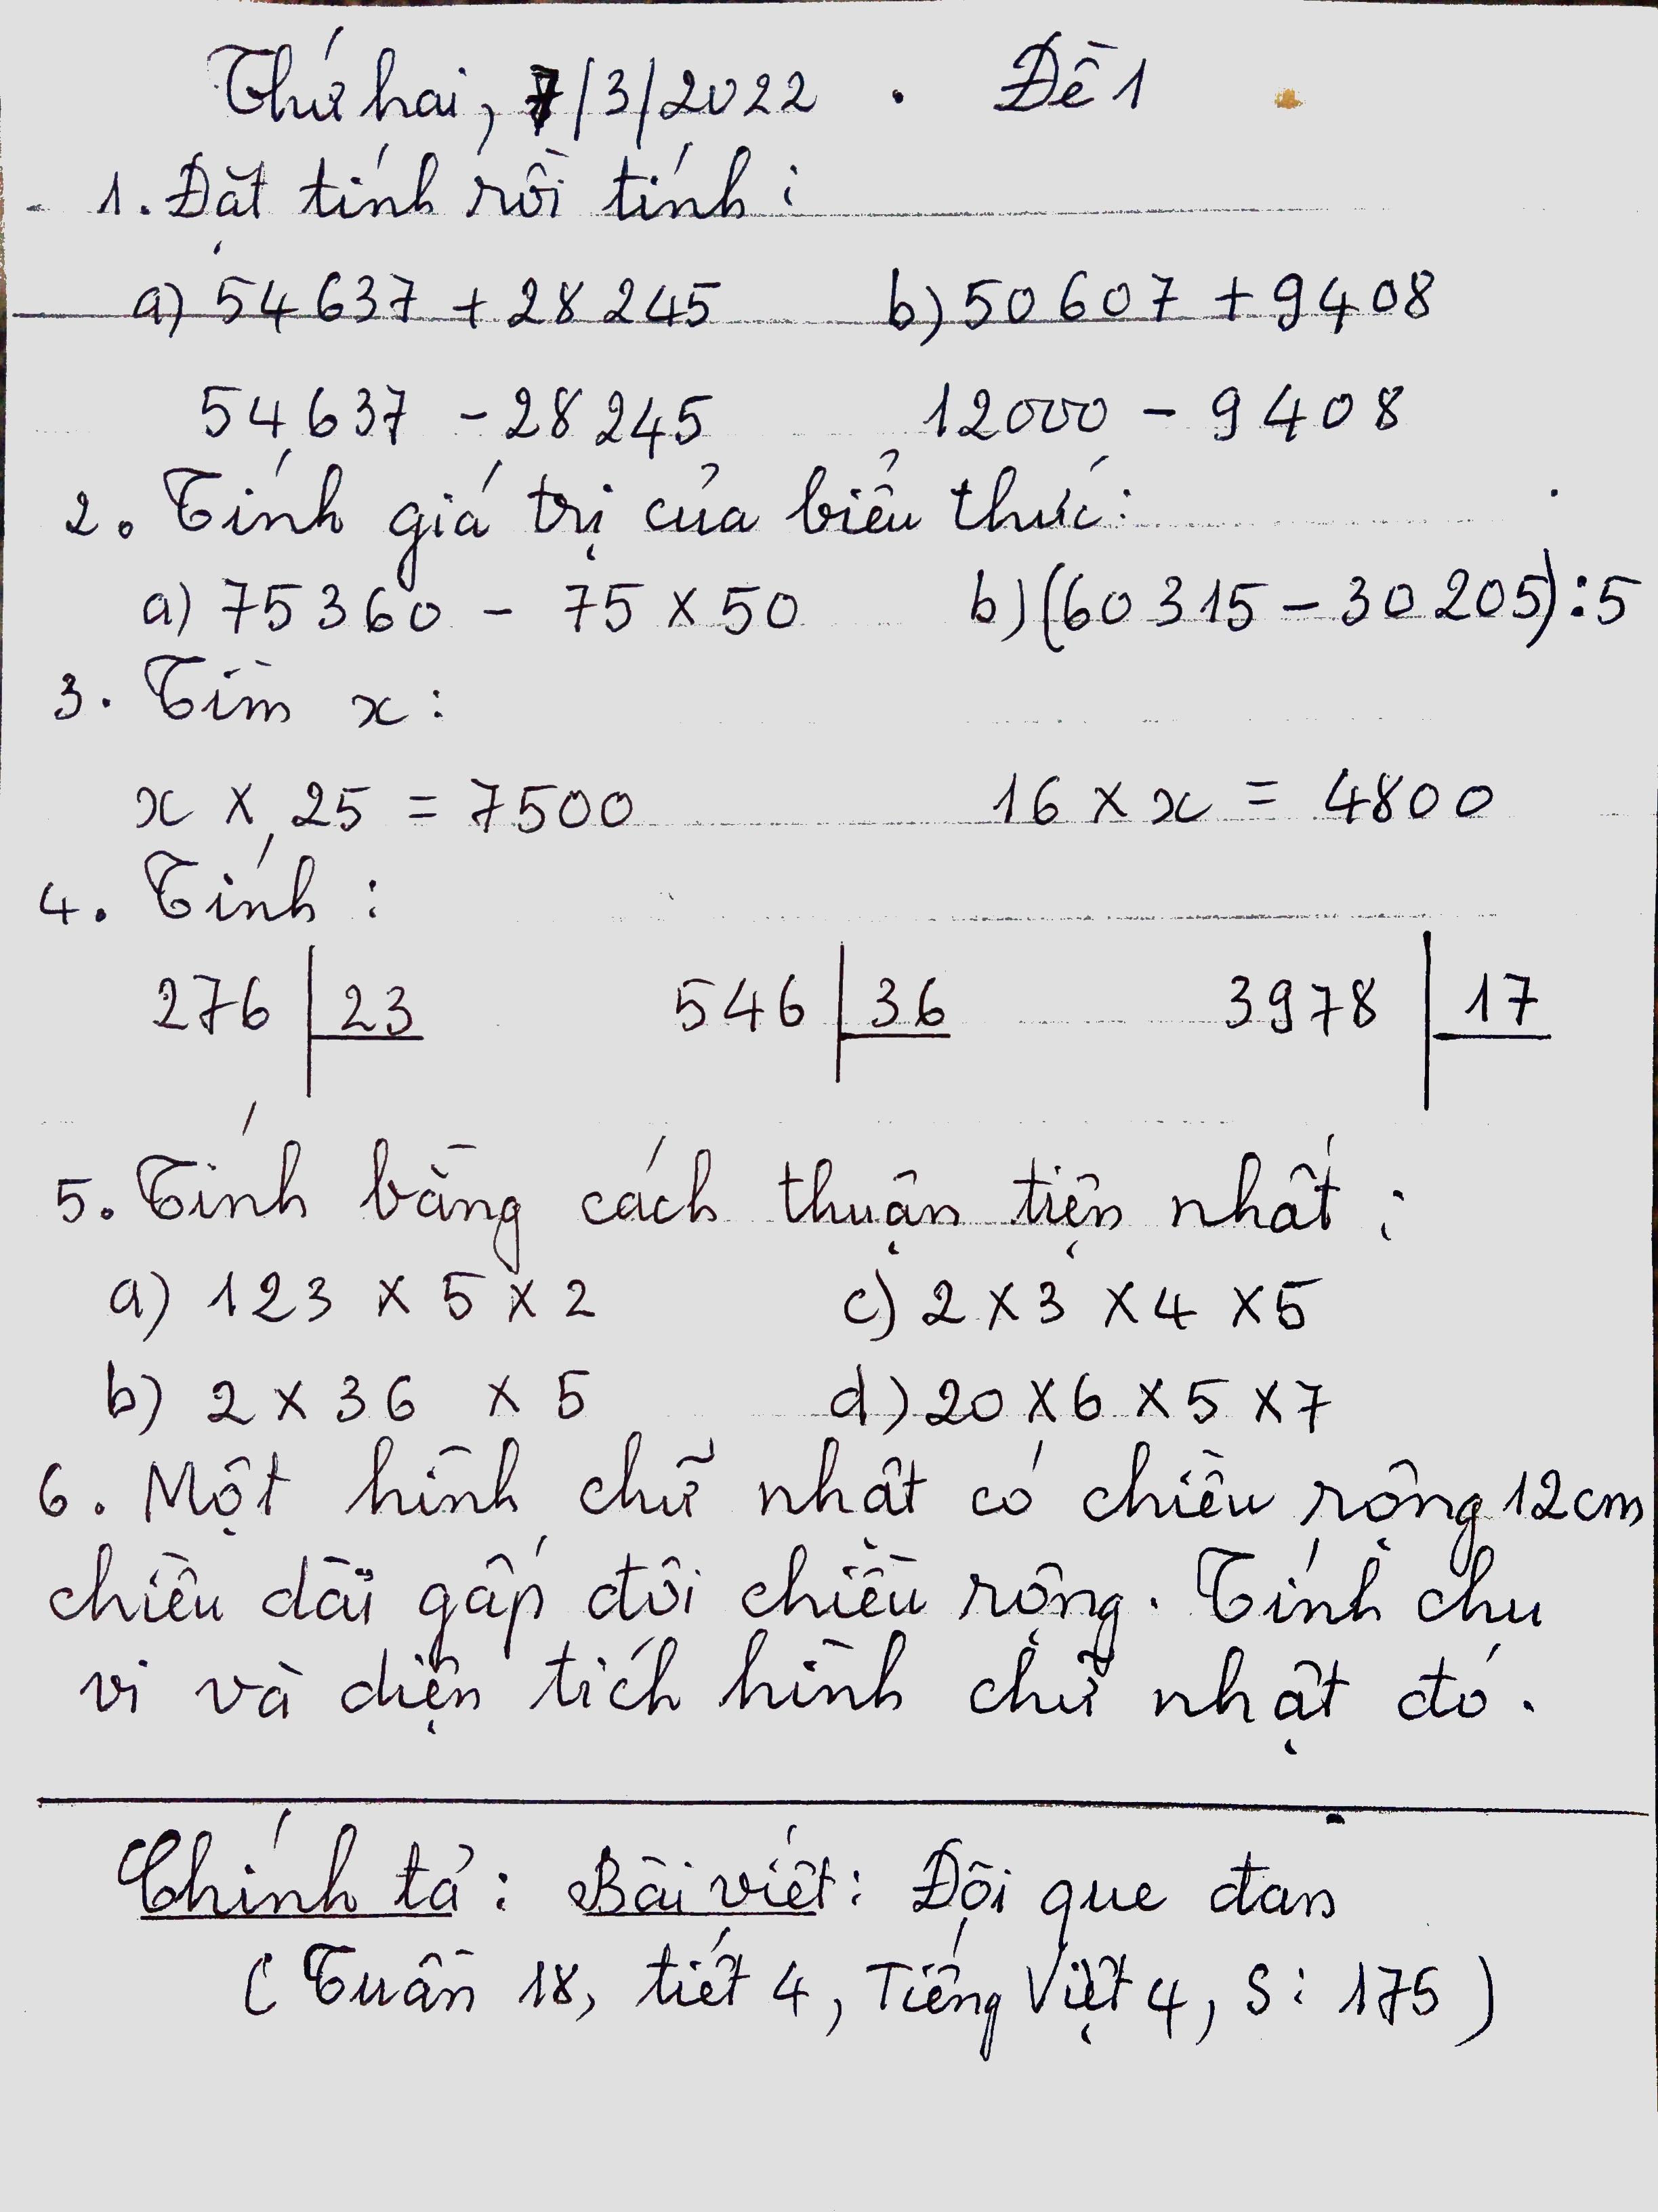 Thứ hai, 7/3/2022. Đề 1
1. Đặt tính rồi tính:
a) 54 637 + 28 245 b) 50 607 + 9 408
54 637 - 28 245 12000 - 9 408
2. Tính giá trị của biểu thức:
a) 75 360 - 75 x 50 b) (60 315 - 30 205) : 5
3. Tìm x:
x x 25 = 7500 16 x x = 4800
4. Tính:
276 | 23 546 | 36 3978 | 17
5. Tính bằng cách thuận tiện nhất:
a) 123 x 5 x 2 c) 2 x 3 x 4 x 5
b) 2 x 36 x 5 d) 20 x 6 x 5 x 7
6. Một hình chữ nhật có chiều rộng 12cm
chiều dài gấp đôi chiều rộng. Tính chu
vi và diện tích hình chữ nhật đó.
Chính tả: Bài viết: Đôi que đan
(Tuần 18, tiết 4, Tiếng Việt 4, S: 175)